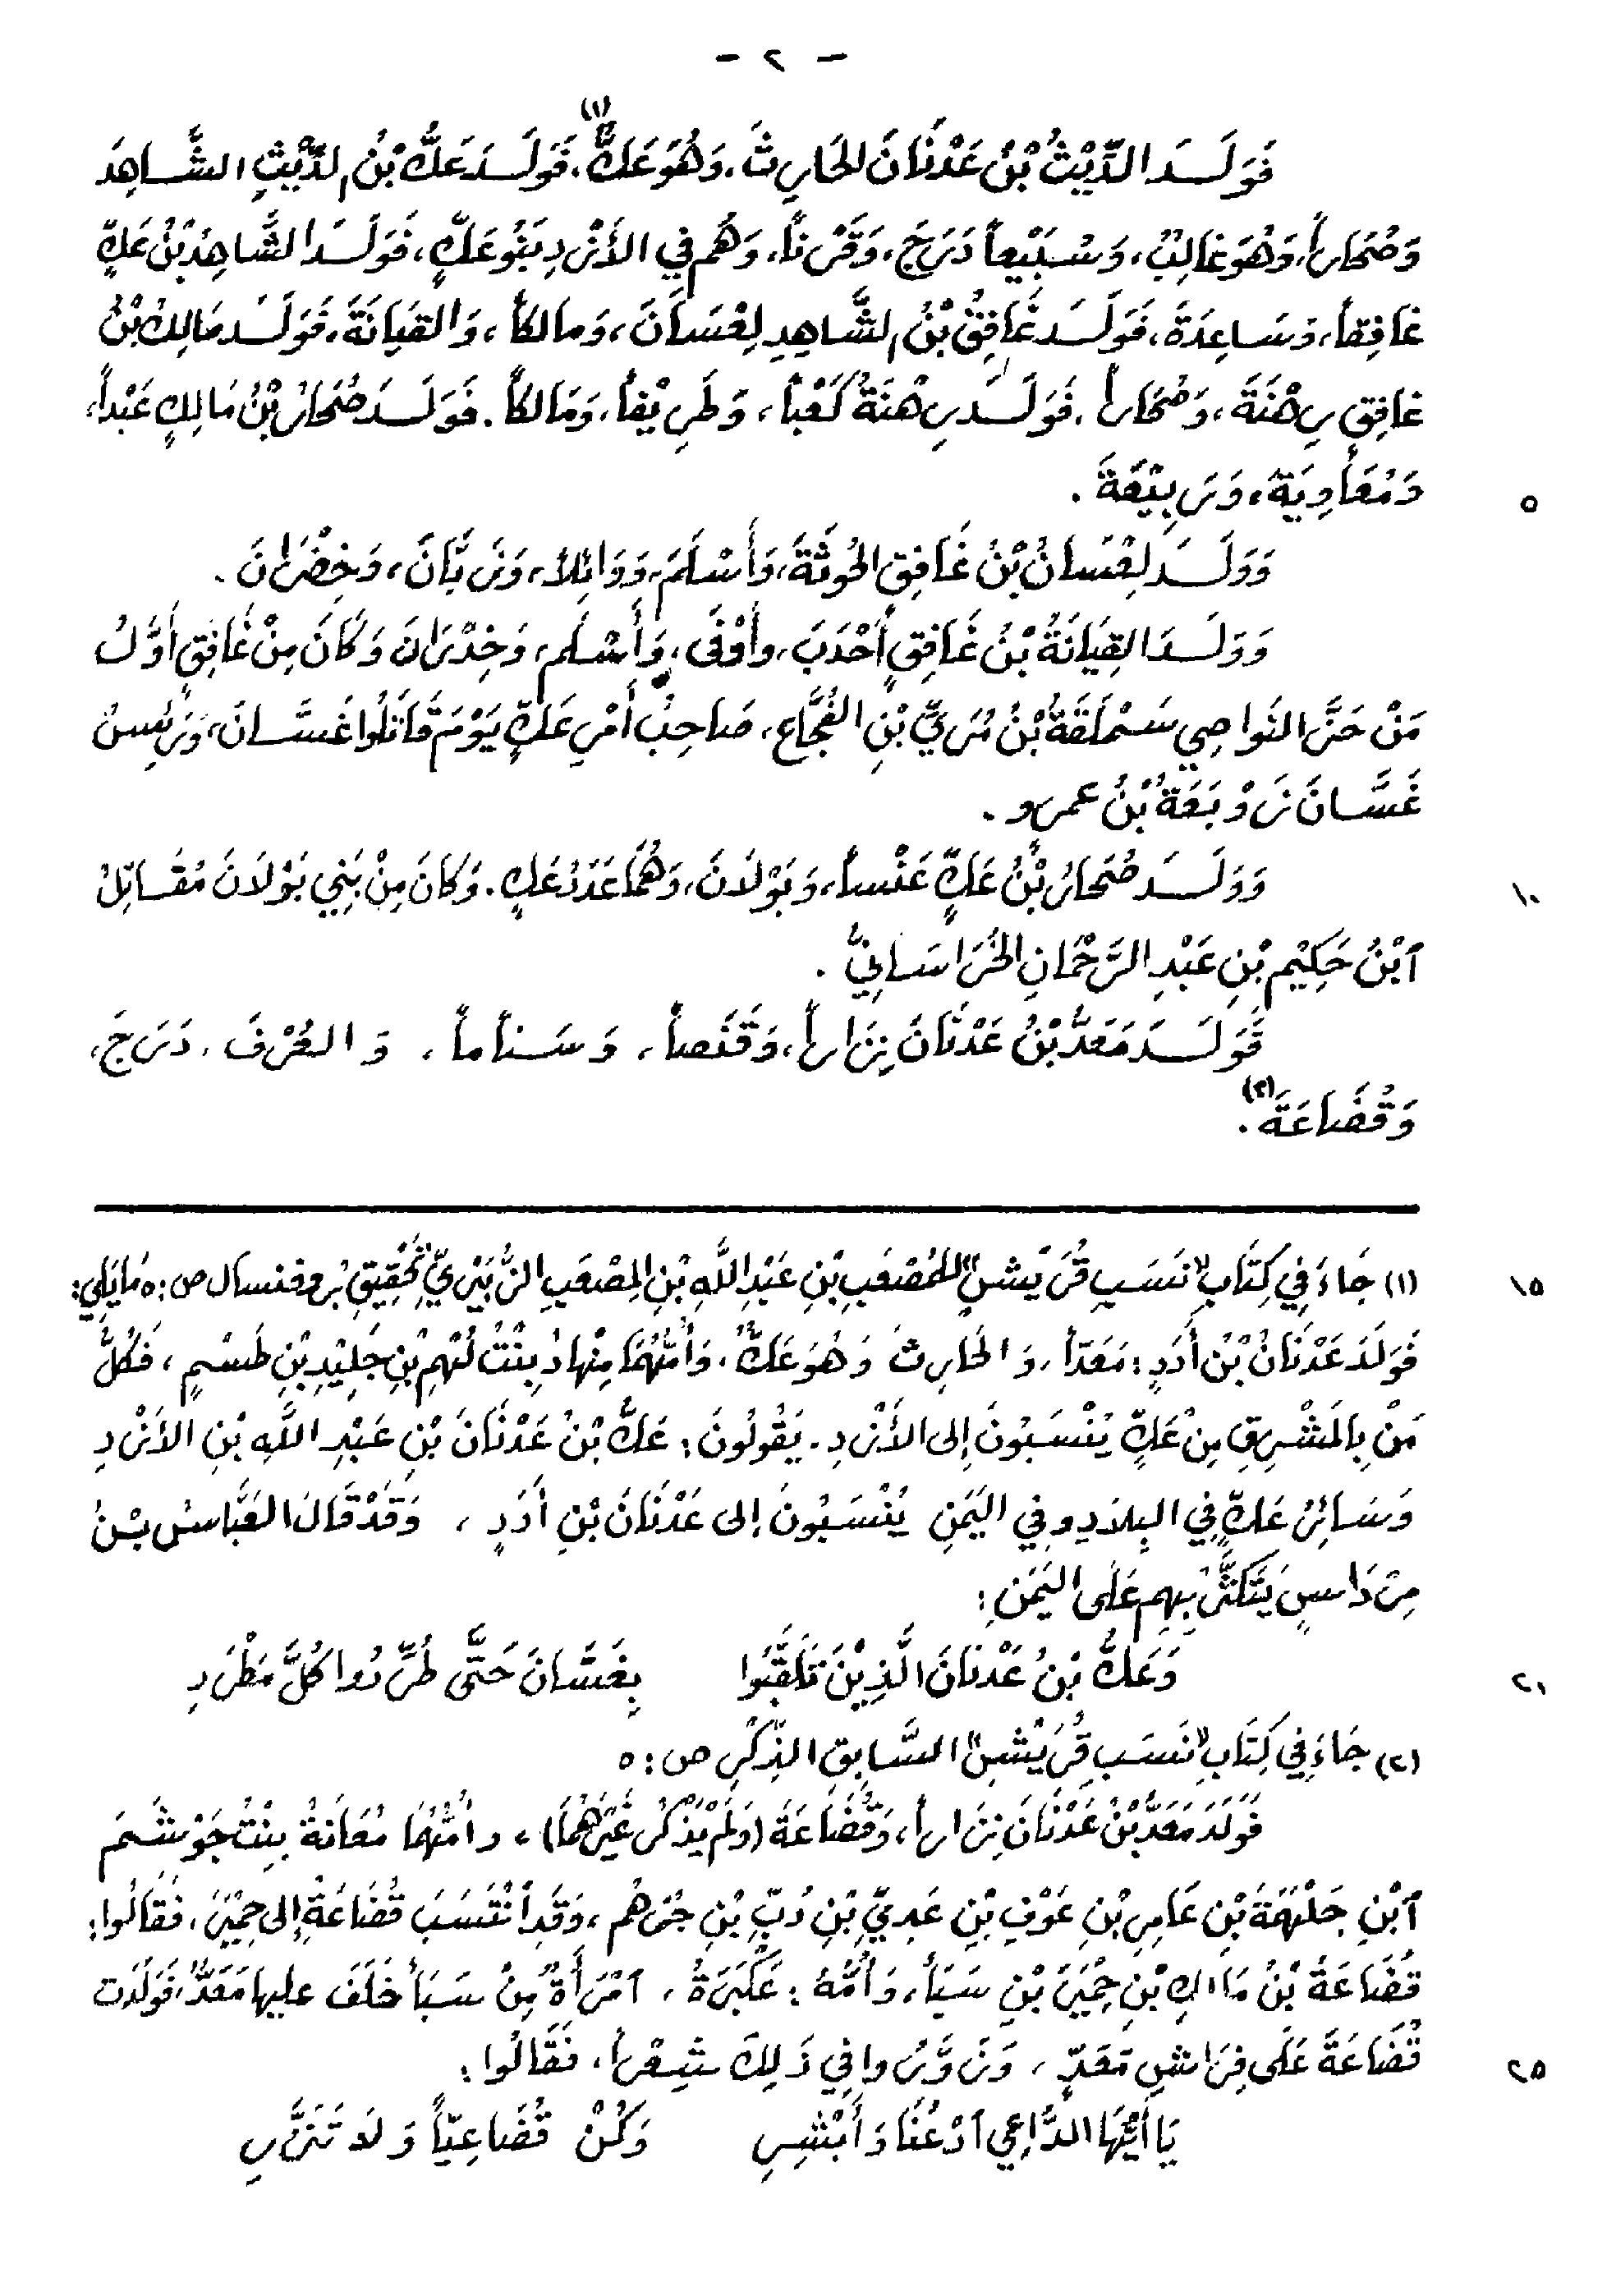 - ٢ -
فَوَلَـدَ الدِّيْثُ بْنُ عَدْنَانَ الحَارِثَ، وَهُوَ عَكٌّ(١)، فَوَلَـدَ عَكُّ بْنُ الدِّيْثِ الشَّـاهِدَ
وَصُحَاراً، وَهُوَ غَالِبٌ، وَسُبَيْعاً دَرَجَ، وَقَرْناً، وَهُم فِي الأَزْدِ بَنُو عَكٍّ، فَوَلَـدَ الشَّاهِدُ بْنُ عَكٍّ
غافِقاً، وَسَاعِدَةَ، فَوَلَـدَ غَافِقُ بْنُ الشَّاهِدِ لِعْسَانَ، وَمالكاً، وَالقيَانَةَ، فَوَلَـدَ مَالِكُ بْنُ
غافِقٍ رِهْنَةَ، وَصُحَاراً. فَوَلَـدَ رِهْنَةُ كَعْباً، وَطَرِيْفاً، وَمَالكاً. فَوَلَـدَ صُحَارُ بْنُ مَالِكٍ عَبْداً،
وَمُعَاوِيَةَ، وَرَبِيْعَةَ.
٥
وَوَلَـدَ لِعْسَانُ بْنُ غَافِقٍ الحُوثَةَ، وَأَسْلَمَ، وَوَائِلاً، وَرَبَّانَ، وَخِضْرَانَ.
وَوَلَـدَ القِيَانَةُ بْنُ غَافِقٍ أَحْدَبَ، وأَوْفَى، وَأَسْلم، وَخِدْرَانَ وَكَانَ مِنْ غَافِقٍ أَوَّلُ
مَنْ حَزَّ النَواصِي سَمْلَقَةُ بْنُ مُرَيِّ بْنِ الفُجَّاعِ، صَاحِبُ أَمْرِ عَكٍّ يَوْمَ قَاتَلُوا غَسَّـانَ، وَرَئِيسُ
غَسَّـانَ زَوْبَعَةُ بْنُ عمرو.
وَوَلَـدَ صُحَارُ بْنُ عَكٍّ عَنْساً، وَبَوْلَانَ، وَهُمَا عَدَدُ عَكٍ. وَكَانَ مِنْ بَنِي بَوْلَانَ مُقَـاتِلُ
١٠
ٱبْنُ حَكِيْمِ بْنِ عَبْدِ الرَّحْمَانِ الخُرَاسَانِيُّ.
فَوَلَـدَ مَعَدُّ بْنُ عَدْنَانَ نِزَاراً، وَقَنَصاً، وَسَـناماً، وَالعُرْفَ، دَرَجَ،
وَقُضَاعَةَ(٢).
(١) جَاءَ فِي كِتَابِ "نَسَبِ قُرَيْشٍ" لِلمُصْعَبِ بْنِ عَبْدِ اللَّهِ بْنِ المِصْعَبِ الزُّبَيْرِيِّ تَحْقِيْقِ بُروفنسال ص: ٥ مَا يَلِي:
١٥
فَوَلَدَ عَدْنَانُ بْنُ أُدَدٍ: مَعَدّاً، وَالحَارِثَ وَهُوَ عَكٌّ، وَأُمُّهُمَا مِنْهَادُ بِنْتُ لُهْمِ بْنِ جَلِيْدِ بْنِ طَسْمٍ، فَكُلُّ
مَنْ بِالمَشْرِقِ مِنْ عَكٍّ يُنْسَبُونَ إِلى الأَزْدِ. يَقُولُونَ: عَكُّ بْنُ عَدْنَانَ بْنِ عَبْدِ اللَّهِ بْنِ الأَزْدِ
وَسَائِرُ عَكٍّ فِي البِلَادِ وفِي اليَمَنِ يُنْسَبُونَ إلى عَدْنَانَ بْنِ أُدَدٍ، وَقَدْ قَالَ العَبَّاسُ بْنُ
مِرْدَاسٍ يَتَكَثَّرُ بِهِم عَلَى اليَمَنِ:
وَعَكُّ بْنُ عَدْنَانَ الَّذِيْنَ تَلَقَّبُوا بِغَسَّانَ حَتَّى طُرِّدُوا كُلَّ مَطْرَدِ
٢٠
(٢) جَاءَ فِي كِتَابِ "نَسَبِ قُرَيْشٍ" السَّابِقِ الذِّكْرِ ص: ٥
فَوَلَدَ مَعَدُّ بْنُ عَدْنَانَ نِزَاراً، وَقُضَاعَةَ (وَلَمْ يَذْكُرْ غَيْرَهُمَا)، وأُمُّهُمَا مُعَانَةُ بِنْتُ جَوْشَـمَ
ٱبْنِ جَلْهَمَةَ بْنِ عَامِرِ بْنِ عَوْفِ بْنِ عَدِيِّ بْنِ دُبِّ بْنِ جُرْهُم، وَقَدِ ٱنْتَسَبَ قُضَاعَةُ إِلى حِمْيَرَ، فَقَالُوا:
قُضَاعَةُ بْنُ مَالِكِ بْنِ حِمْيَرَ بْنِ سَبَأَ، وَأُمُّهُ: عَكْبَرَةُ، ٱمْرَأَةٌ مِنْ سَبَأ خَلَفَ عليها مَعَدٌّ، فَوَلَدَت
قُضَاعَةَ عَلَى فِرَاشِ مَعَدٍّ، وَزَوَّرُوا فِي ذَلِكَ شِـعْراً، فَقَالُوا:
٢٥
يَا أَيُّهَا الدَّاعِي ٱدْعُنَا وَأَبْشِرِ وَكُنْ قُضَاعِيّاً وَلَا تَنَزَّرِ